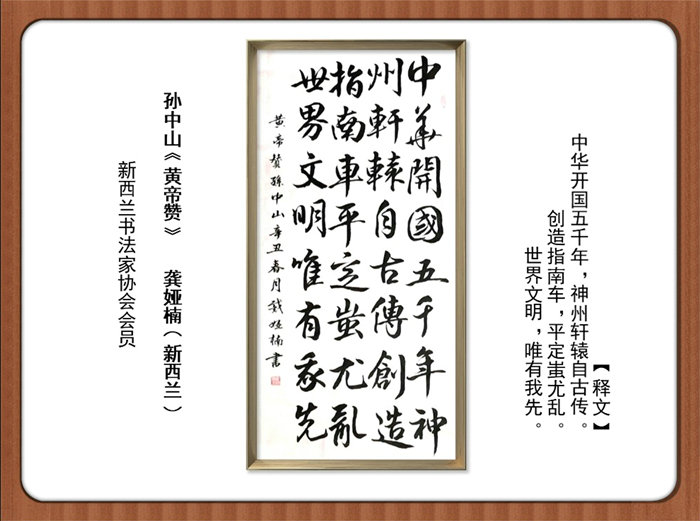 【释文】
中华开国五千年，神州轩辕自古传。
创造指南车，平定蚩尤乱。
世界文明，唯有我先。
中華開國五千年神
州軒轅自古傳創造
指南車平定蚩尤亂
世界文明唯有我先
黄帝贊孫中山辛丑春月龔娅楠書
孙中山《黄帝赞》 龚娅楠（新西兰）
新西兰书法家协会会员